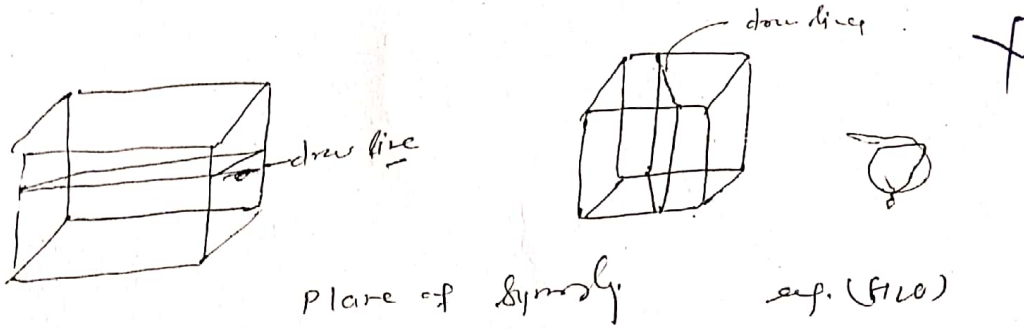 draw line
draw line
Plane of Symm
eg. (H2O)